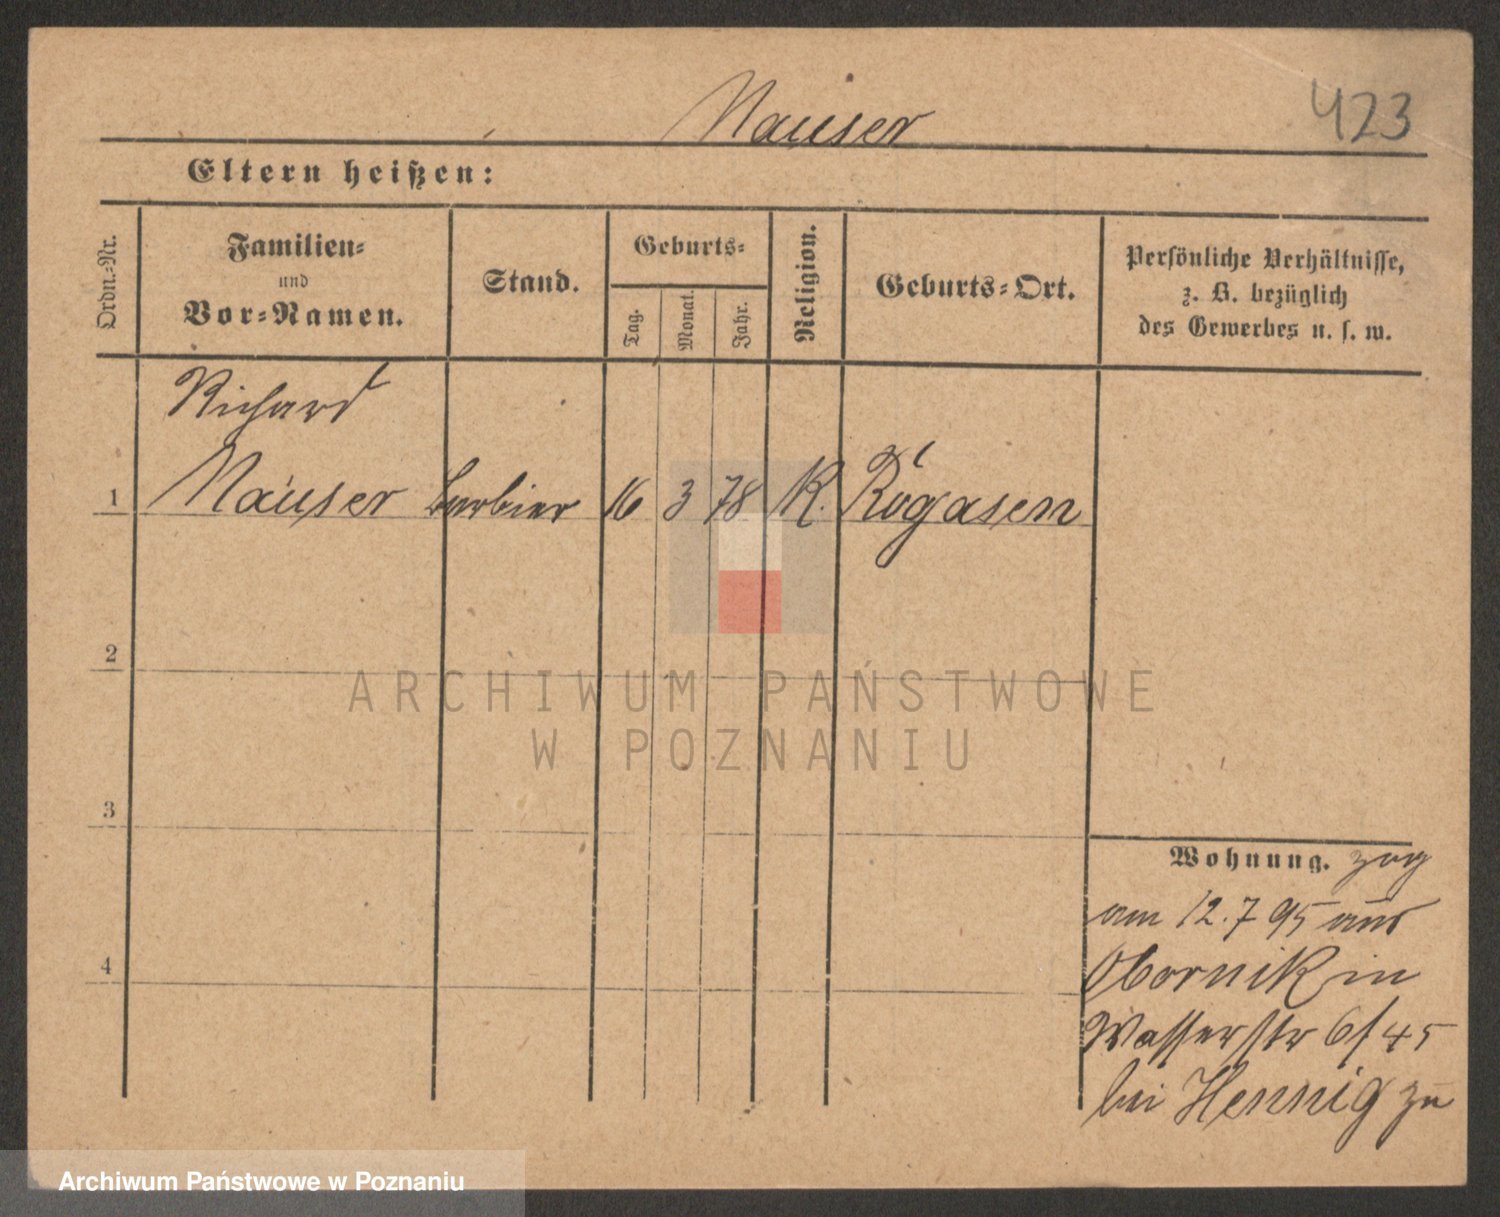 Mauser
423
Eltern heißen:
Ordn.=Nr.
Familien=
und
Vor=Namen.
Stand.
Geburts=
Tag.
Monat.
Jahr.
Religion.
Geburts=Ort.
Persönliche Verhältnisse,
z. B. bezüglich
des Gewerbes u. s. w.
Richard
1 Mauser Barbier 16 3 78 K. Rogasen
2
ARCHIWUM PAŃSTWOWE
W POZNANIU
3
Wohnung. zog
am 12.7 95 aus
4
Obornik in
Wasserstr 6/45
bei Hennig zu
Archiwum Państwowe w Poznaniu